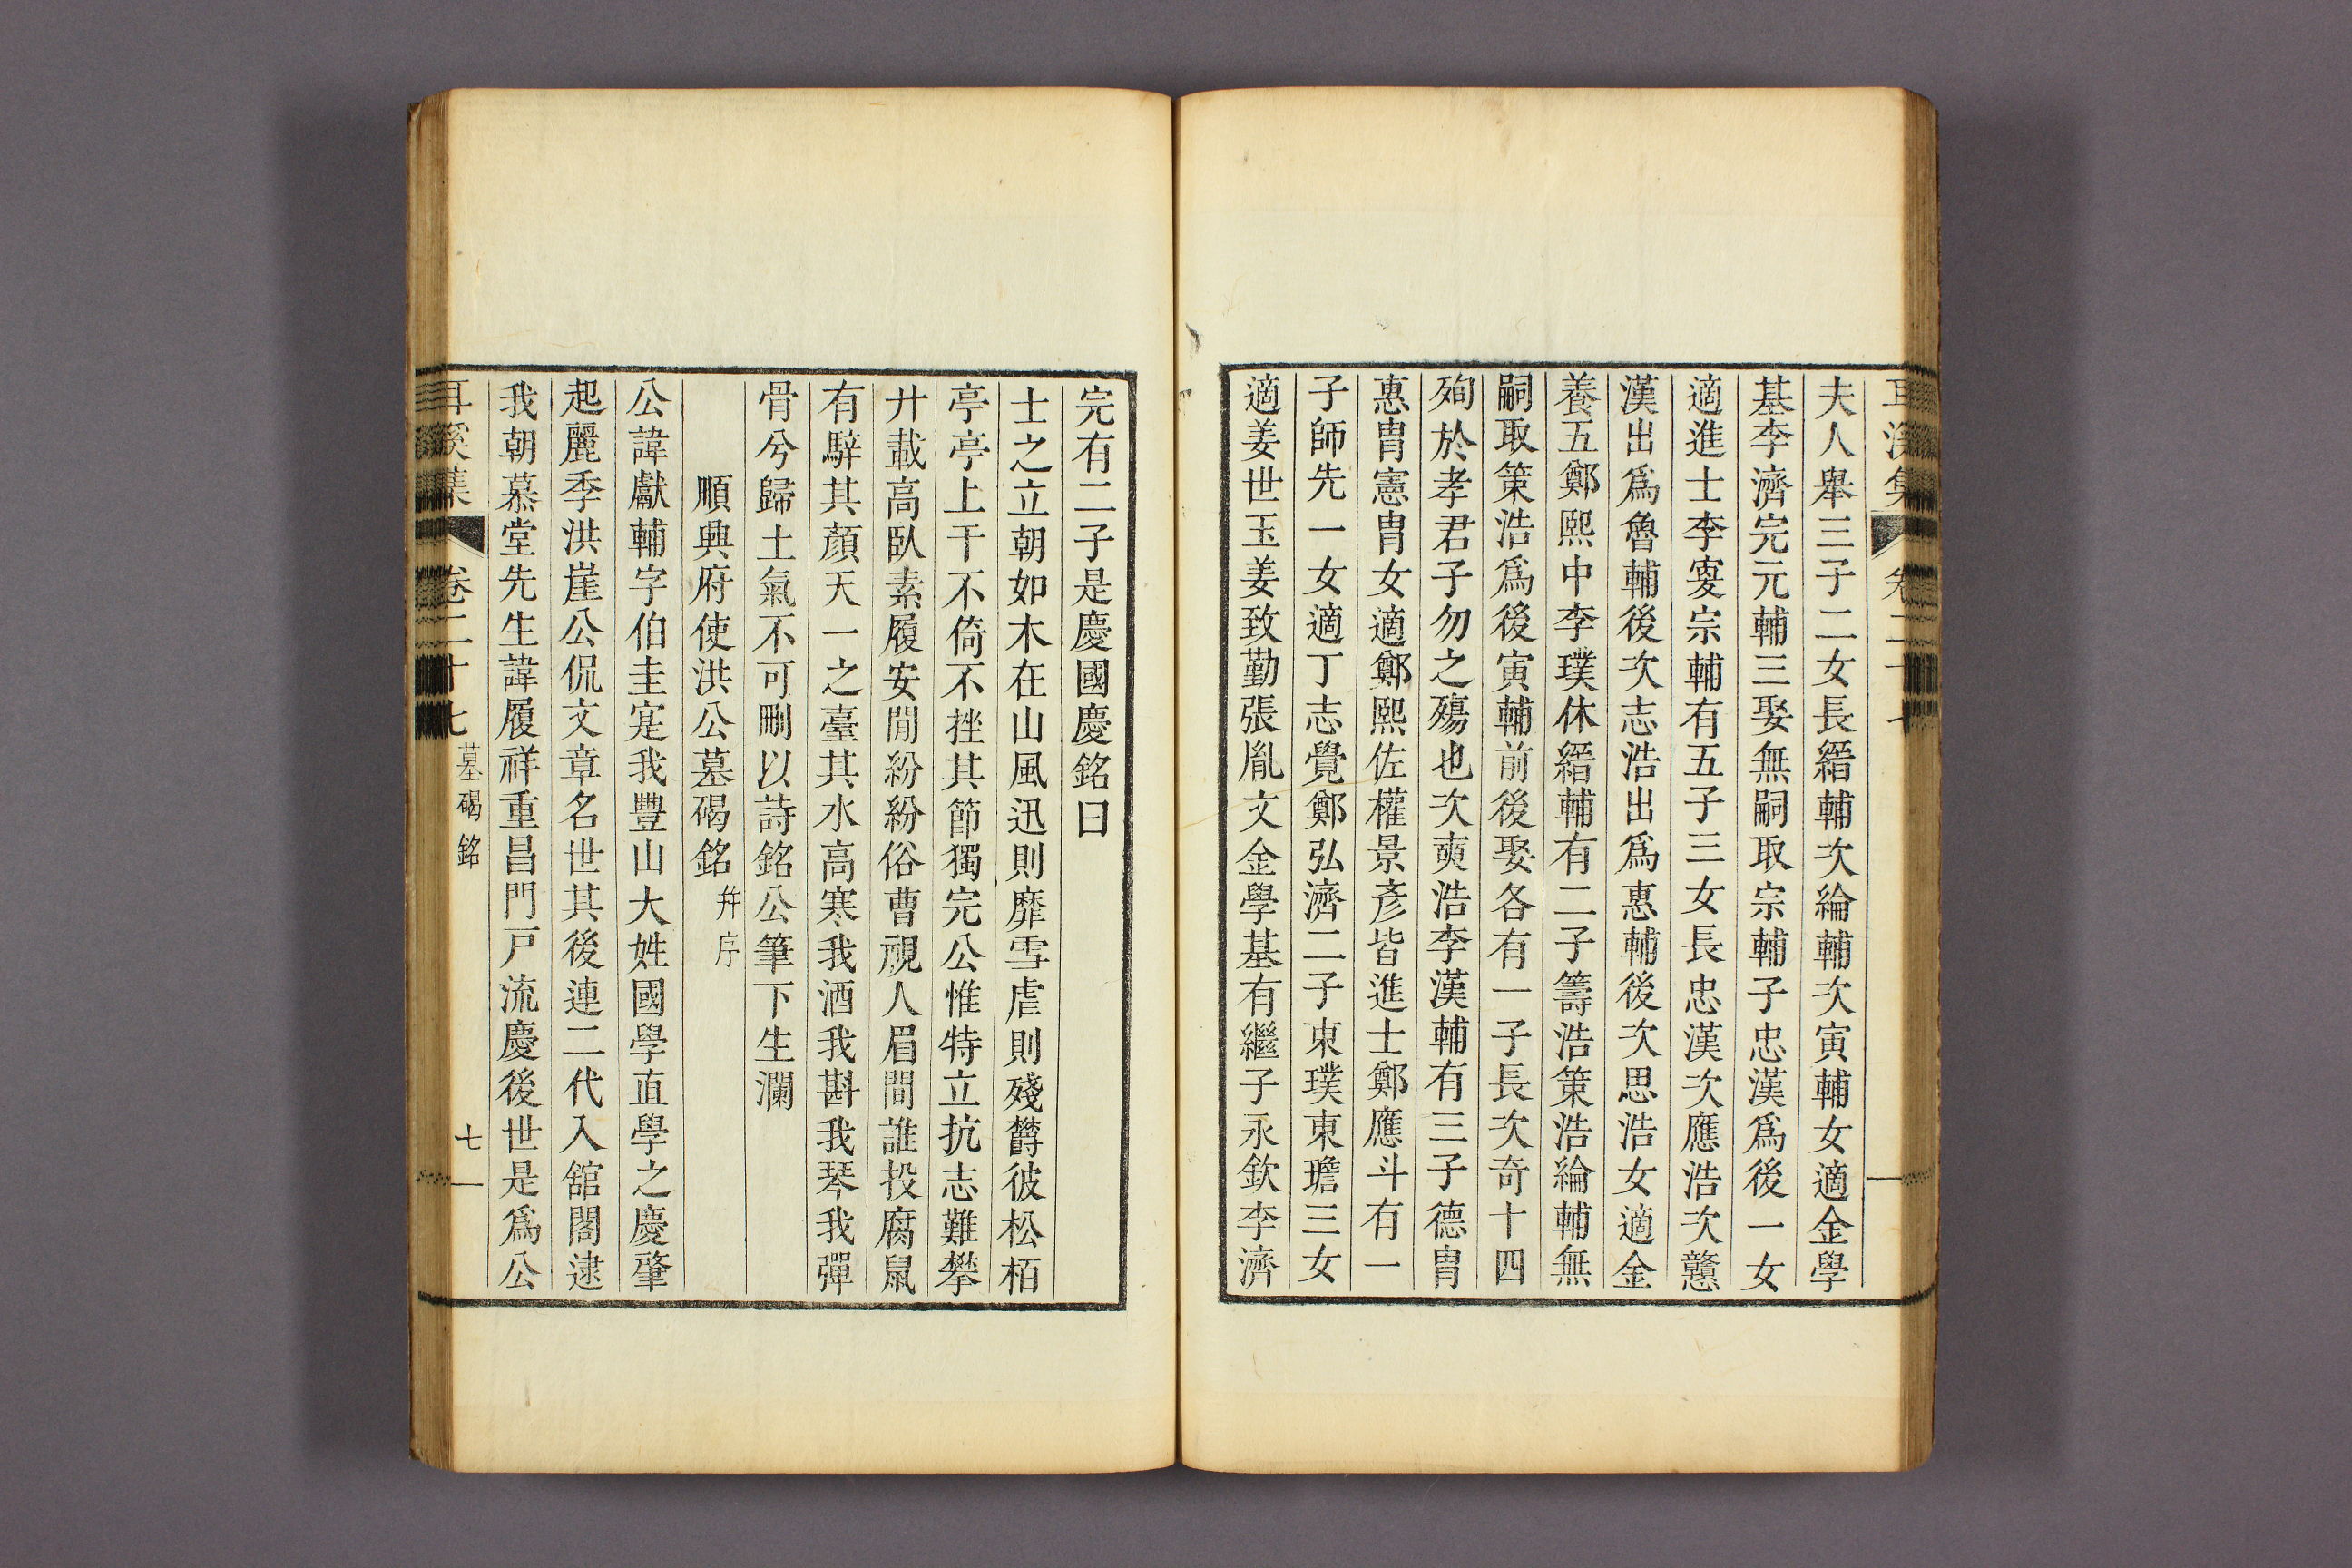 耳溪集 卷二十七
夫人舉三子二女長縉輔次綸輔次寅輔女適金學
基李濟完元輔三娶無嗣取宗輔子忠漢爲後一女
適進士李宴宗輔有五子三女長忠漢次應浩次戇
漢出爲魯輔後次志浩出爲惠輔後次思浩女適金
養五鄭熙中李璞休縉輔有二子籌浩策浩綸輔無
嗣取策浩爲後寅輔前後娶各有一子長次奇十四
殉於孝君子勿之殤也次奭浩李漢輔有三子德胄
惠胄憲胄女適鄭熙佐權景彥皆進士鄭應斗有一
子師先一女適丁志覺鄭弘濟二子東璞東瞻三女
適姜世玉姜致勤張胤文金學基有繼子永欽李濟
完有二子是慶國慶銘曰
士之立朝如木在山風迅則靡雪虐則殘欝彼松栢
亭亭上干不倚不挫其節獨完公惟特立抗志難攀
廾載高臥素履安閒紛紛俗曹視人眉間誰投腐鼠
有騂其顏天一之臺其水高寒我酒我斟我琴我彈
骨兮歸土氣不可刪以詩銘公筆下生瀾
順興府使洪公墓碣銘 幷序
公諱獻輔字伯圭寔我豐山大姓國學直學之慶肇
起麗季洪崖公侃文章名世其後連二代入舘閣逮
我朝慕堂先生諱履祥重昌門戸流慶後世是爲公
耳溪集 卷二十七 墓碣銘 七